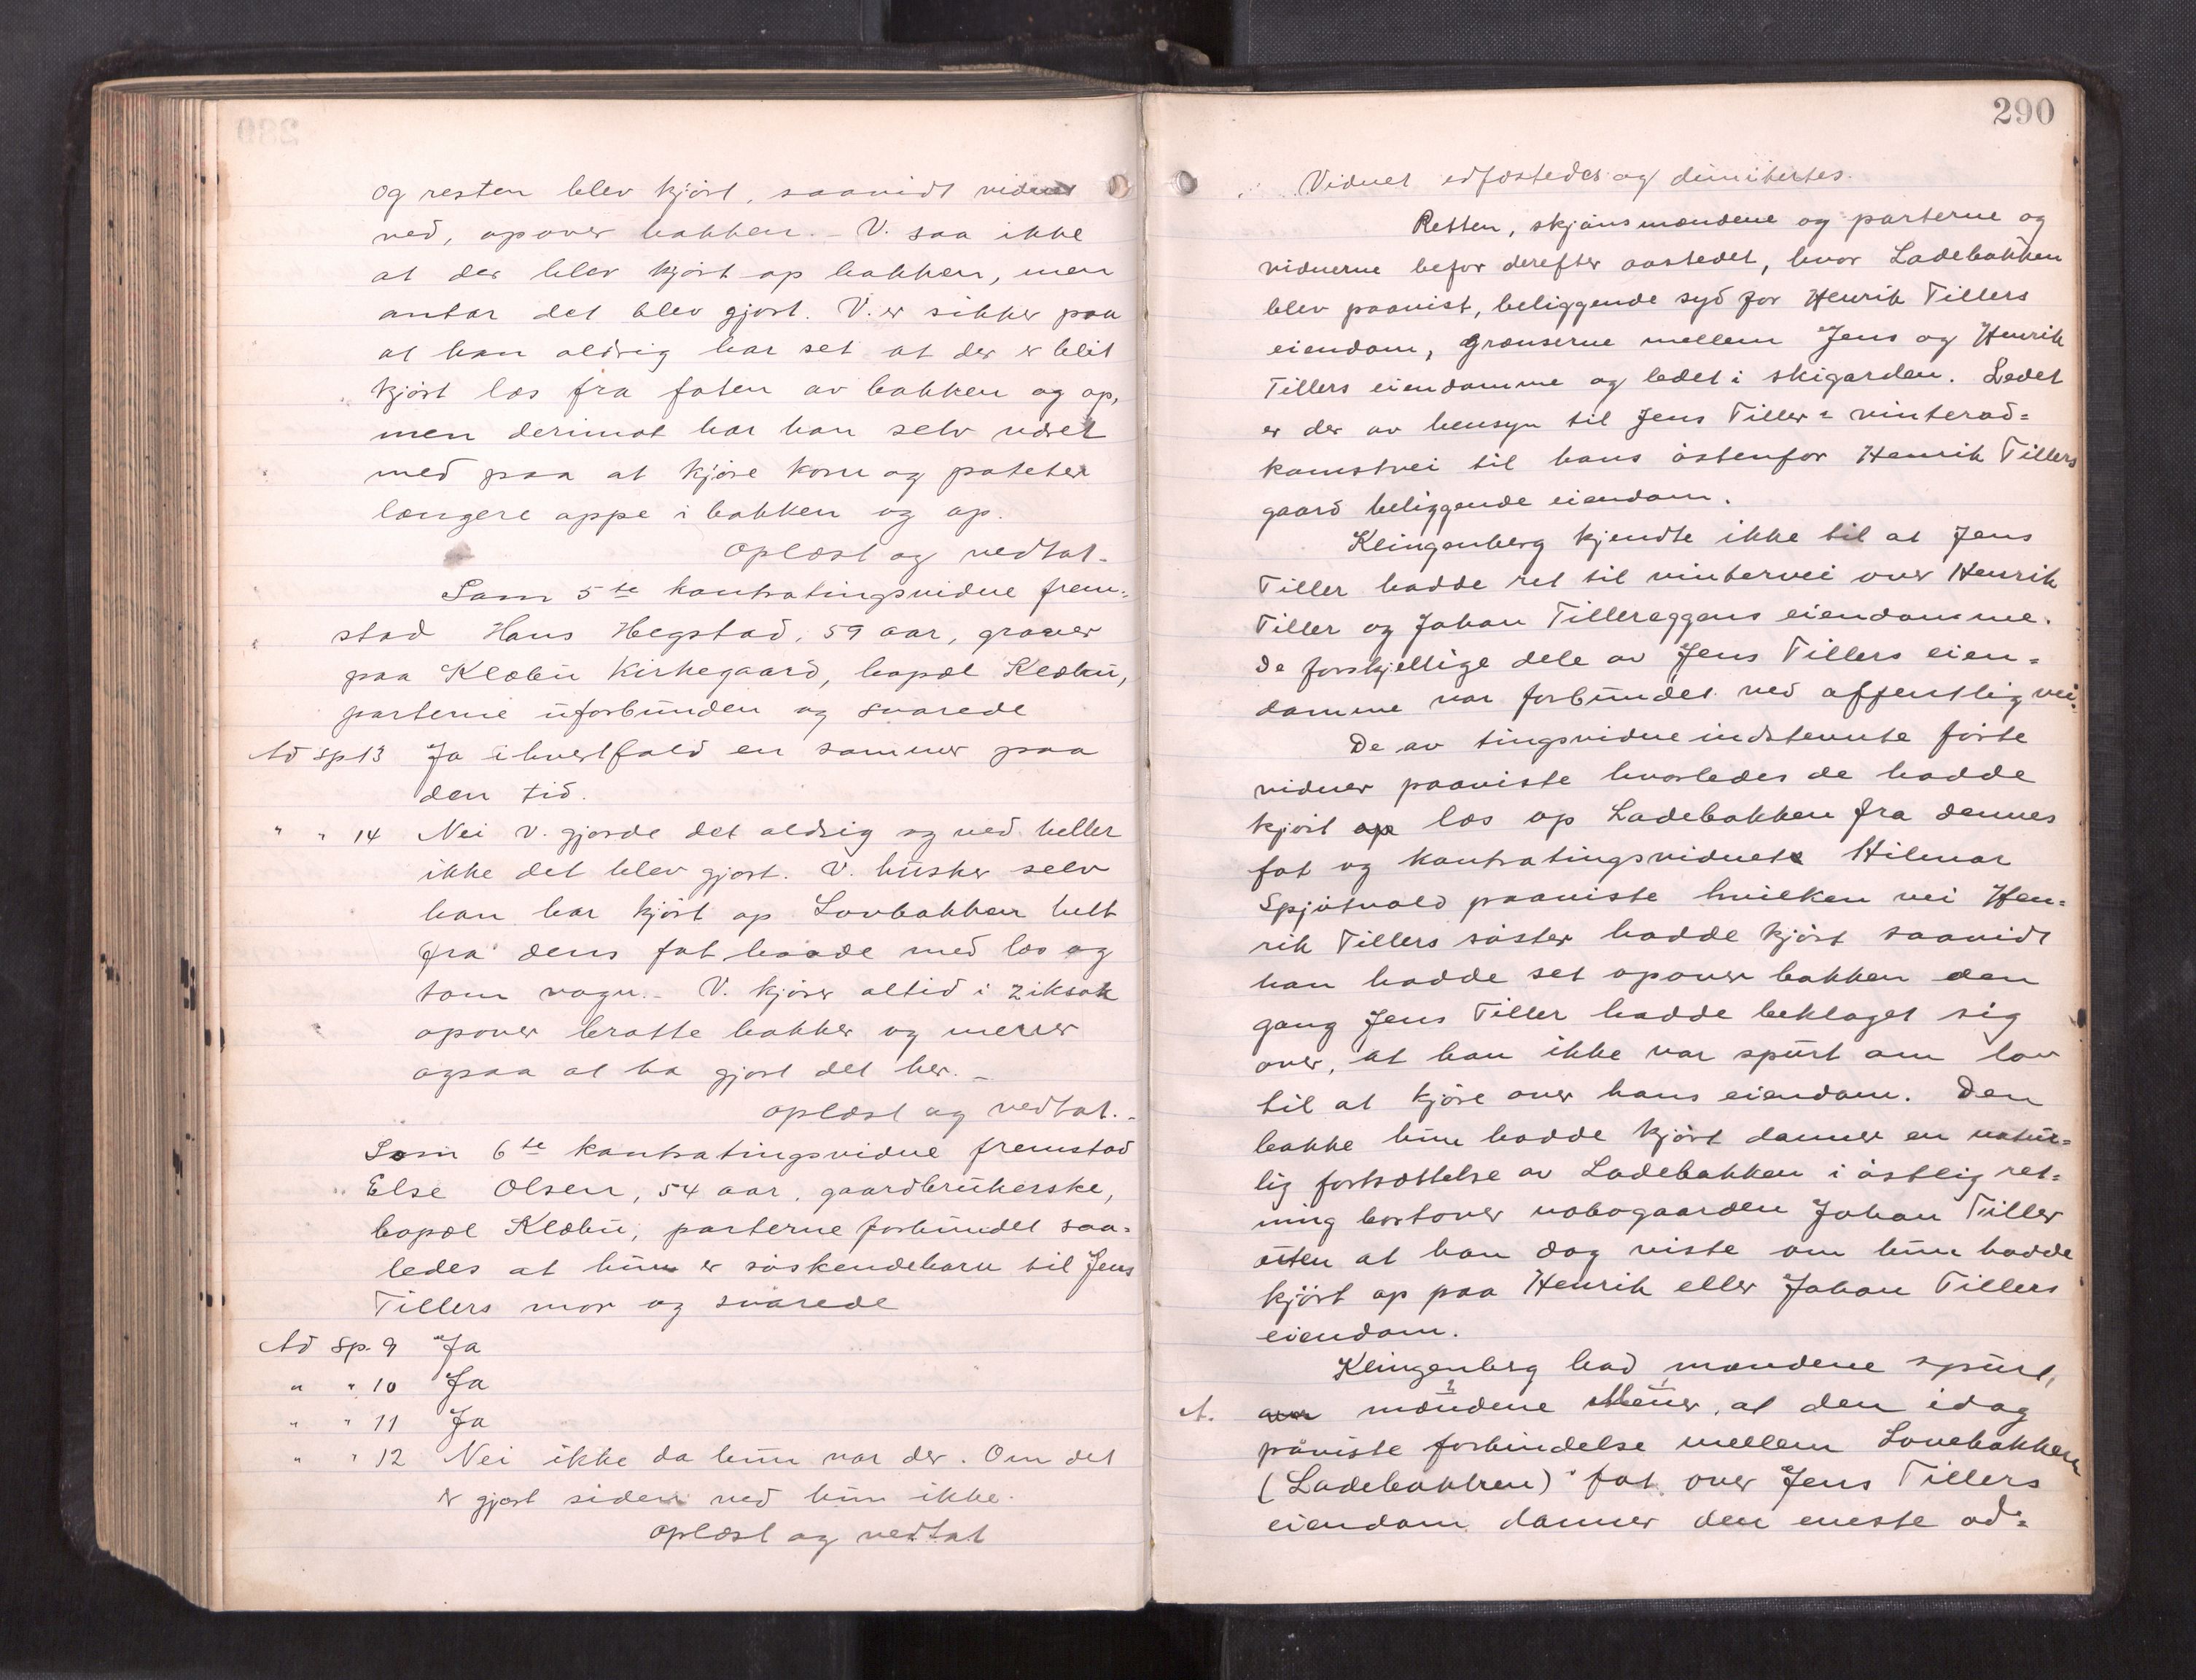 og resten blev kjört, saavidt vidnet
ved, opover bakken. – V. saa ikke
at der blev kjört op bakken, men
antar det blev gjort. V. er sikker paa
at han aldrig har set at der er blit
kjört læs fra foten av bakken og op,
men derimot har han selv været
med paa at kjöre korn og poteter
længere oppe i bakken og op.
Oplæst og vedtat.
Som 5te kontratingsvidne frem-
stod Hans Hegstad, 59 aar, graver
paa Klæbu Kirkegaard, bopæl Klæbu,
parterne uforbunden og svarede
Ad sp 13 Ja ihvertfald en sommer paa
den tid.
" " 14 Nei V. gjorde det aldrig og ved heller
ikke det blev gjort. V. husker selv
han har kjört op Lovbakken helt
fra dens fot baade med læs og
tom vogn. – V. kjörer altid i ziksak
opover bratte bakker og mener
ogsaa at ha gjort det her. –
Oplæst og vedtat. –
Som 6te kontratingsvidne fremstod
Else Olsen, 54 aar, gaardbrukerske,
bopæl Klæbu, parterne forbundet saa-
ledes at hun er söskendebarn til Jens
Tillers mor og svarede
Ad sp. 9 Ja
" " 10 Ja
" " 11 Ja
" " 12 Nei ikke da hun var der. Om det
er gjort siden ved hun ikke.
Oplæst og vedtat
290
Vidnet edfæstedes og dimitertes.
Retten, skjönsmændene og parterne og
vidnerne befor derefter aastedet, hvor Ladebakken
blev paavist, beliggende syd for Henrik Tillers
eiendom, grænserne mellem Jens og Henrik
Tillers eiendomme og ledet i skigarden. Ledet
er der av hensyn til Jens Tillers vinterad-
komstvei til hans östenfor Henrik Tillers
gaard beliggende eiendom.
Klingenberg kjendte ikke til at Jens
Tiller hadde ret til vintervei over Henrik
Tiller og Johan Tillereggens eiendomme.
De forskjellige dele av Jens Tillers eien-
domme var forbundet ved offentlig vei.
De av tingsvidneindstevnte förte
vidner paaviste hvorledes de hadde
kjört op læs op Ladebakken fra dennes
fot og kontratingsvidnet Hilmar
Spjötvold paaviste hvilken vei Hen-
rik Tillers söster hadde kjört saavidt
han hadde set opover bakken den
gang Jens Tiller hadde beklaget sig
over, at han ikke var spurt om lov
til at kjöre over hans eiendom. Den
bakke hun hadde kjört danner en natur-
lig fortsættelse av Ladebakken i östlig ret-
ning bortover nabogaarden Johan Tiller
uten at han dog viste om hun hadde
kjört op paa Henrik eller Johan Tillers
eiendom.
Klingenberg bad mændene spurt,
A. om mændene mener, at den idag
påviste forbindelse mellem Lovebakken
(Ladebakken) fot over Jens Tillers
eiendom danner den eneste ad-